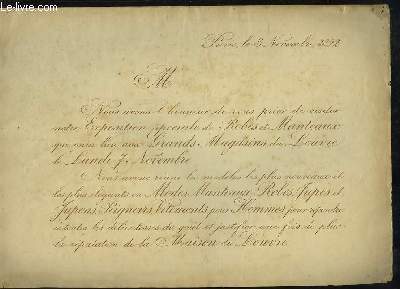 Paris, le 3 Novembre
M
Nous avons l'honneur de vous prier de visiter
notre Exposition spéciale de Robes et Manteaux
que aura lieu aux Grands Magasins du Louvre
le Lundi 7 Novembre
Nous avons réuni les modèles les plus nouveaux et
les plus élégants en Modes Manteaux Robes, Jupes et
Jupons, Peignoirs Vêtements pour Hommes pour répondre
à toutes les délicatesses du goût et justifier une fois de plus
la réputation de la Maison du Louvre
www.le-livre.com